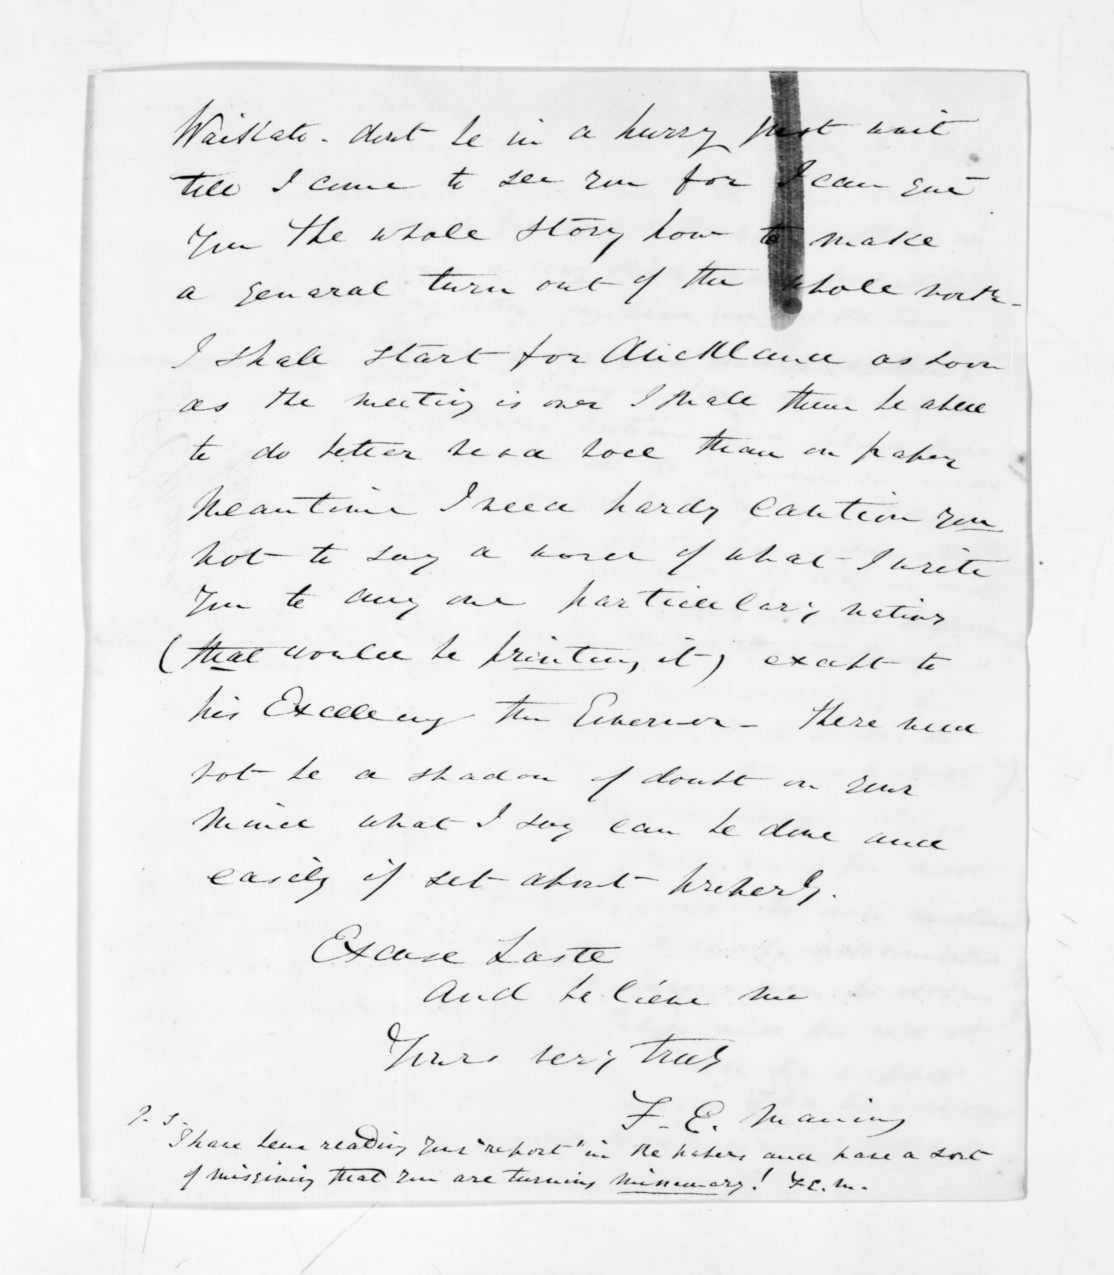 Waikato - dont be in a hurry just wait
till I come to see you for I can give
you the whole story how to make
a general turn out of the whole north -
I shall start for Auckland as soon
as the meeting is over I shall then be able
to do better vivâ voce than on paper
Meantime I need hardly caution you
not to say a word of what I write
you to any one particularly natives
(that would be printing it) except to
his Excellency the Governor - there need
not be a shadow of doubt on your
mind what I say can be done and
easily if set about properly.
Excuse haste
And believe me
Yours very truly
F. E. Maning
P. S.
I have been reading your "report" in the papers and have a sort
of misgiving that you are turning missionary! F.E.M.